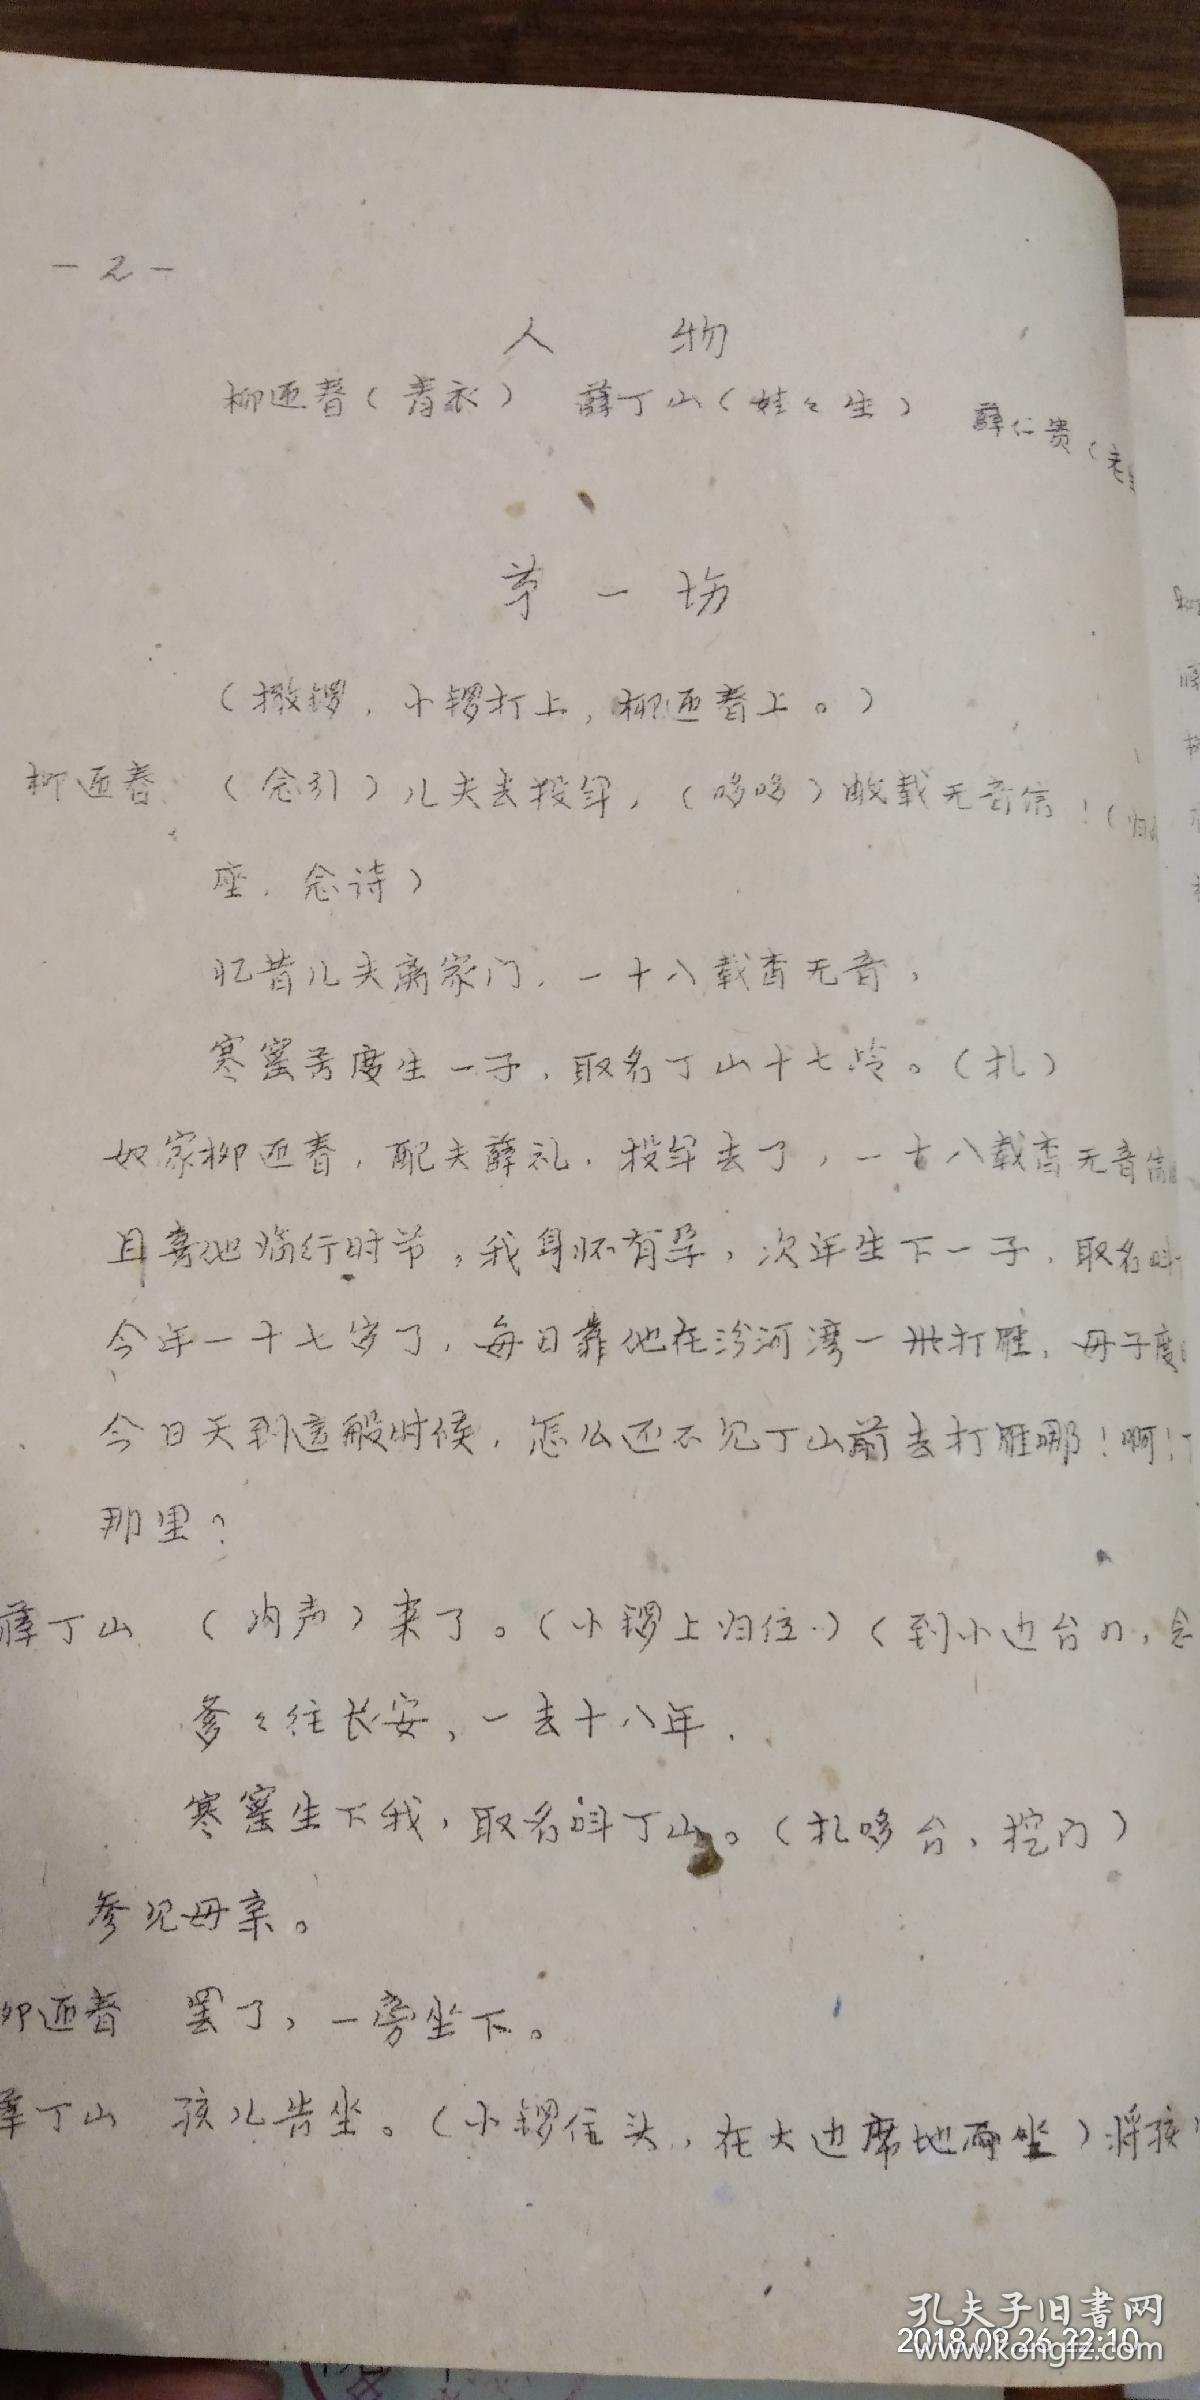 －2－
人 物
柳迎春（青衣） 薛丁山（娃々生） 薛仁贵（老
第一场
（撤锣，小锣打上，柳迎春上。）
柳迎春 （念引）儿夫去投军，（哆哆）数载无音信！（归
座，念诗）
忆昔儿夫离家门，一十八载杳无音，
寒窑苦度生一子，取名丁山十七令。（扎）
奴家柳迎春，配夫薛礼，投军去了，一十八载杳无音信
且喜他临行时节，我身怀有孕，次年生下一子，取名叫
今年一十七岁了，每日靠他在汾河湾一带打雁，母子度
今日天到这般时候，怎么还不见丁山前去打雁哪！啊！丁
那里？
薛丁山 （内声）来了。（小锣上归位）（到小边台口，念
爹々往长安，一去十八年．
寒窑生下我，取名叫丁山。（扎哆台，挖门）
参见母亲。
柳迎春 罢了，一旁坐下。
薛丁山 孩儿告坐。（小锣住头，在大边席地而坐）将孩
孔夫子旧书网
2018.09.26 22:10
www.kongfz.com